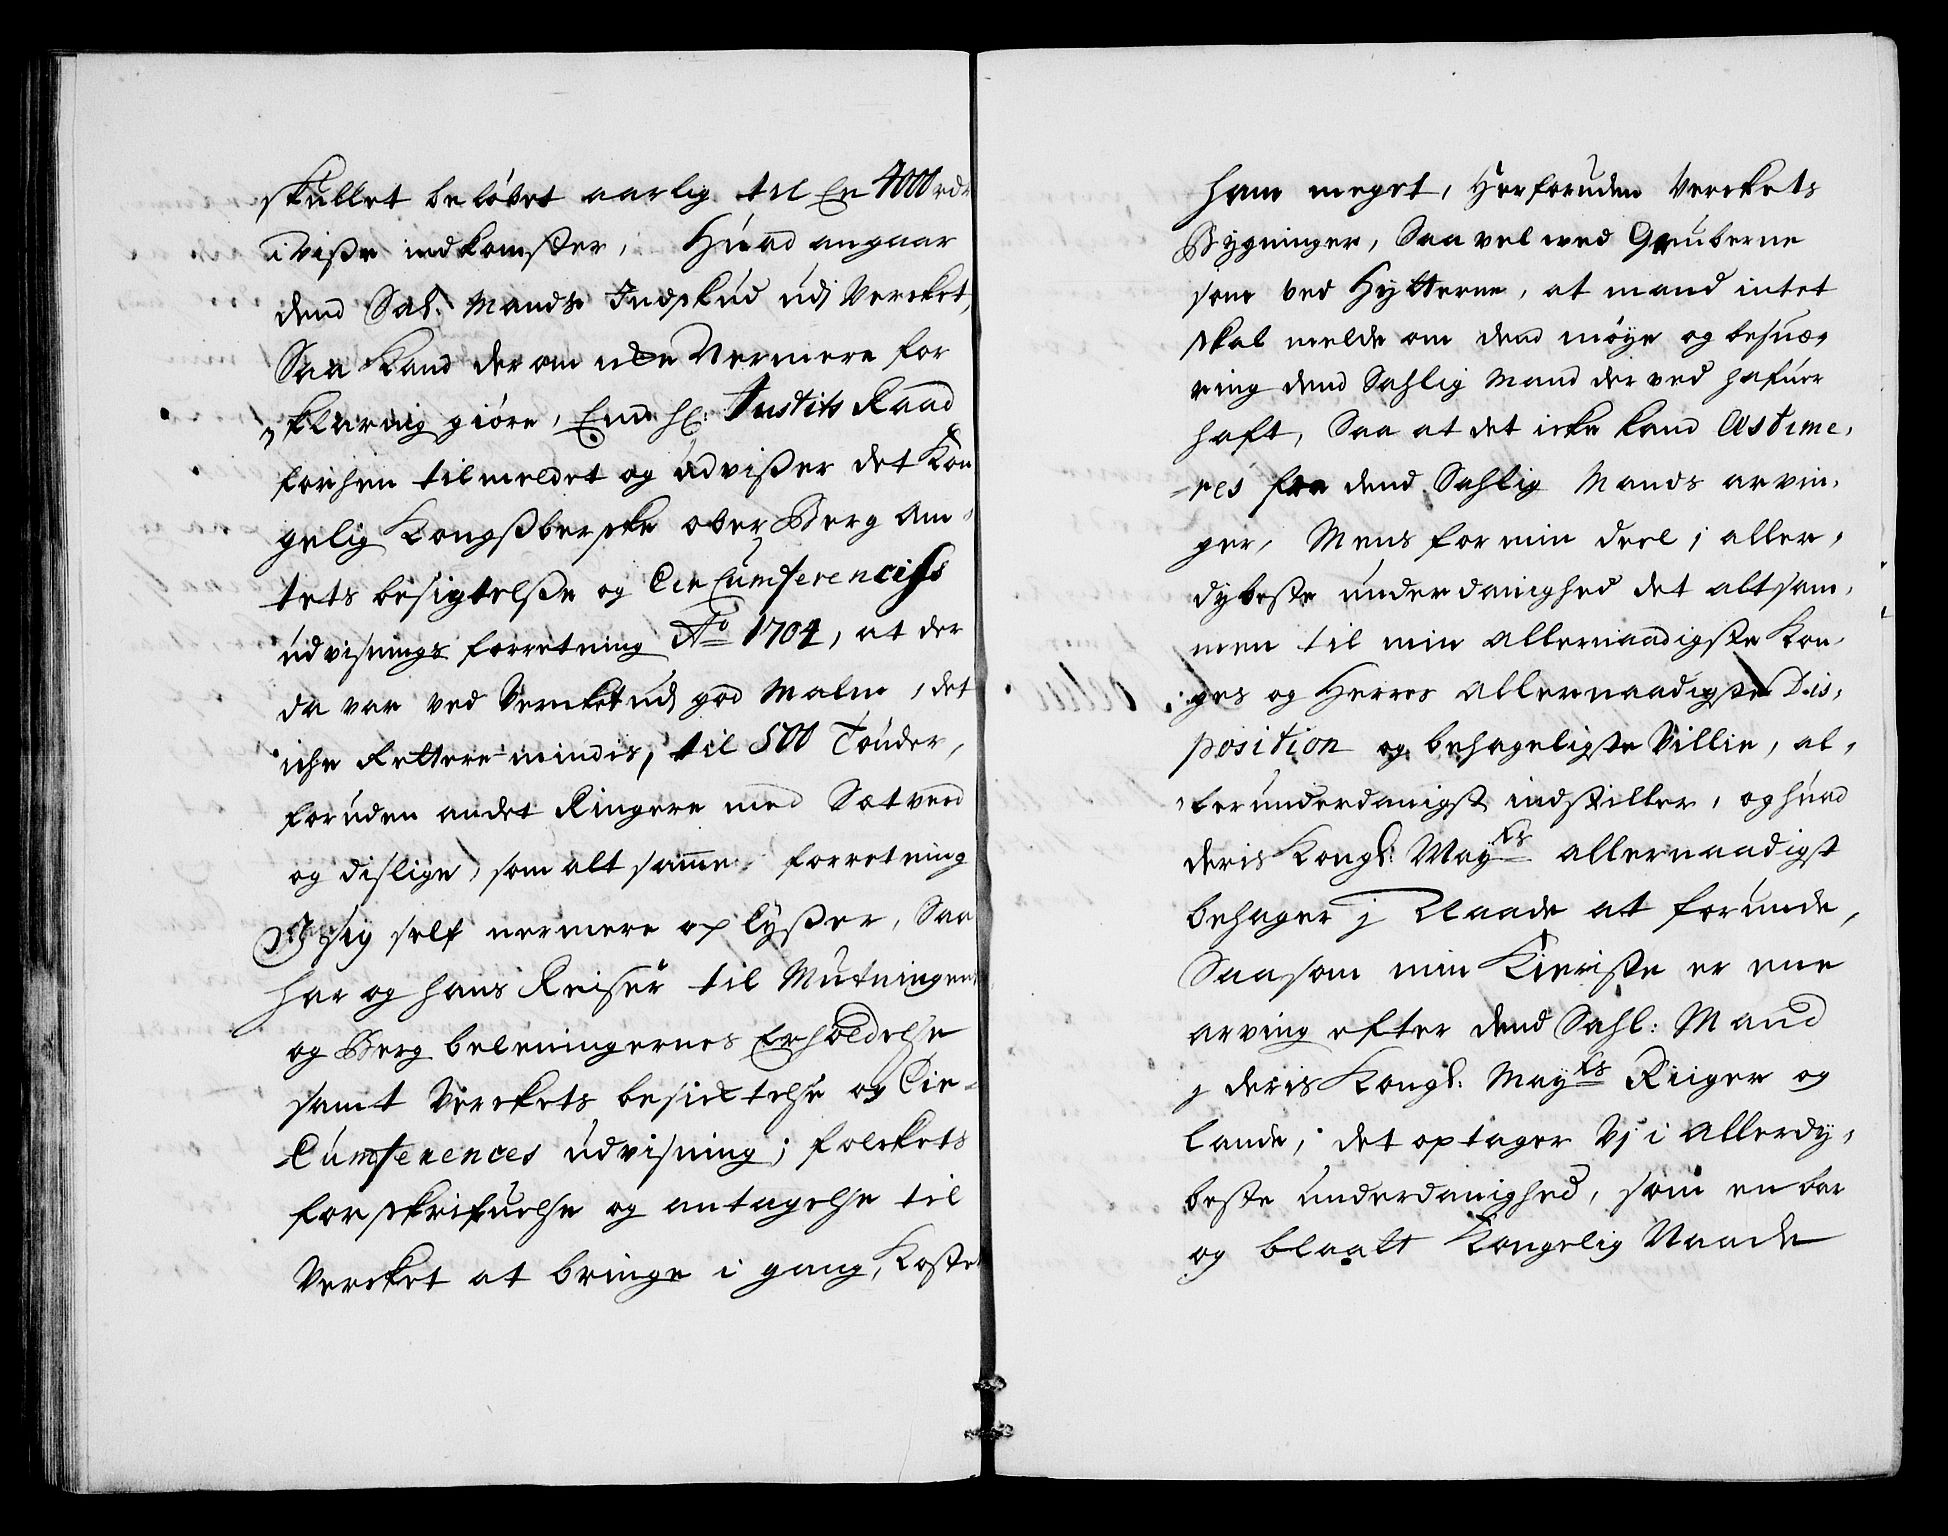 skullet beløbet aarlig til En 4000 rdr
i visße indkomster, Huad angaar
dend Sal: Mands Indskud udj Vercket,
Saa Kand der om icke Nermere for
klaring giöre, End hr: Justits Raad
forhen tilmeldet og udvißer det Kon
gelig Kongßbergske ober Berg Am-
tets besigtelße og CirCumferences
udvisnings forretning Ao 1704, at der
da var ved Vercket udj god Malm, det
iche Rettere mindis, til 500 Tönder,
foruden andet Ringere med Setverd
og dislige, som alt samme forretning
J sig self nermere oplyßer, Saa
har og hans Reiser til Mutningens
og Berg beleningernes Erholdelse
samt Verckets besichtelse og Cir-
Cumferences udvisning, folckets
forskrifuelse og antagelse til
Vercket at bringe i gang, Kostet
ham meget, Herforuden Verckets
Bygninger, Saa vel ved Gruberne
som ved Hytterne, at mand intet
skal melde om dend möye og besuæ,
ring dend Sahlig Mand der ved hafuer
haft, Saa at det icke kand Æstime,
res fra dend Sahlig Mands arvin,
ger, Mens for min deel, i aller,
dybeste underdanighed det altsam,
men til min allernaadigste Kon,
ges og Herres allernaadigste Dis,
position og behageligste Villie, al,
lerunderdanigst indstiller, og huad
deris Kongl: Mayts allernaadigst
behager j Naade at forunde,
Saasom min Kieriste er ene
arving efter dend Sahl: Mand
j deris Kongl: Mayts Riiger og
Lande, det optager Vj i allerdy,
beste underdanighed, som en bar
og blaatt Kongelig Naade